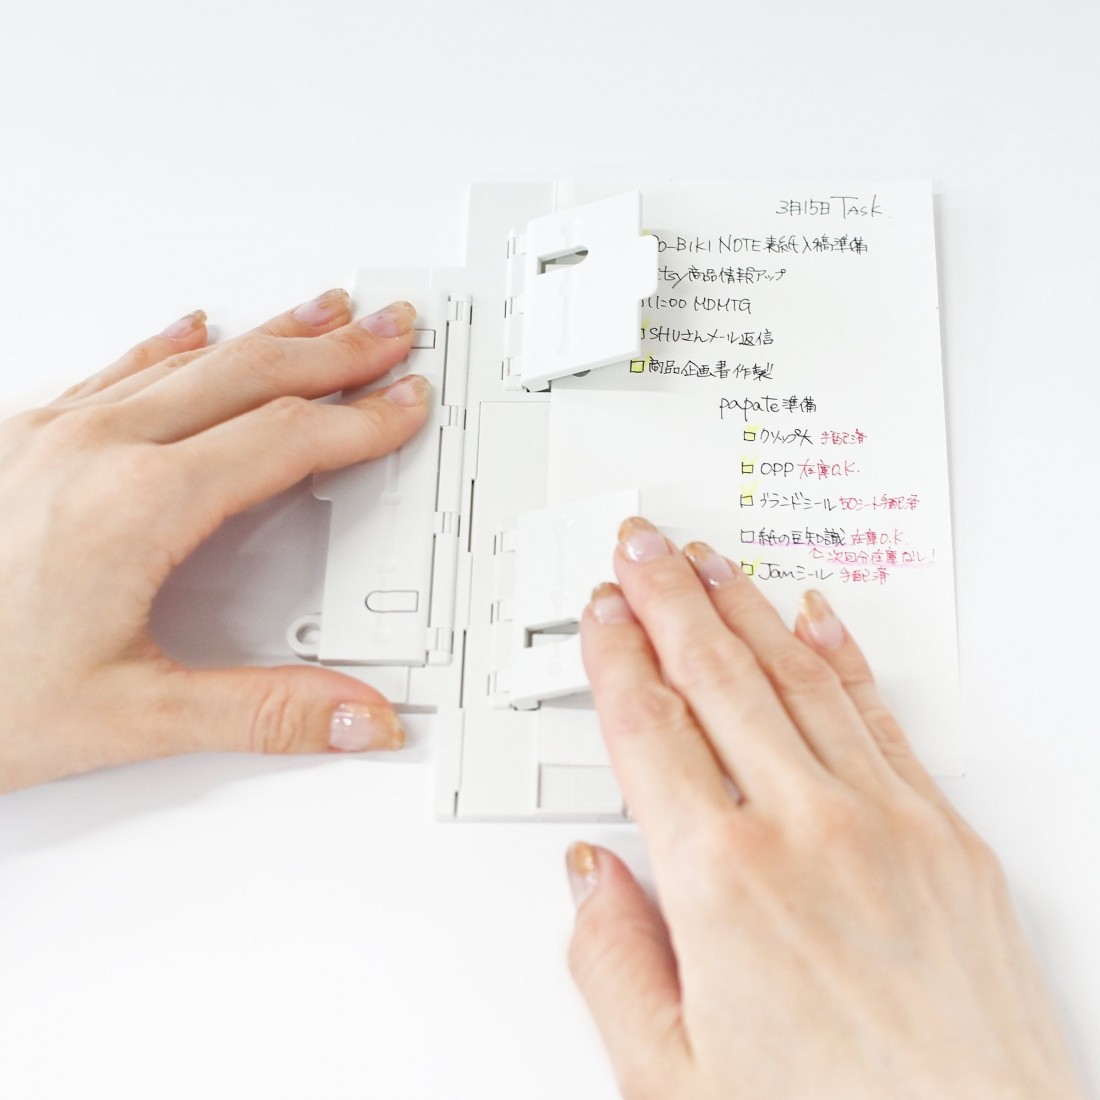 3月15日 TASK.
o-BIKI NOTE 表紙入稿準備
tsy商品情報アップ
11:00 MDMTG
SHUさんメール返信
□商品企画書作製!!
papate準備
□クリップ大 手配済
□OPP 在庫O.K.
□ブランドシール50シート手配済
□紙の豆知識 在庫O.K.
↑次回分在庫ナシ!
□Jamシール 手配済